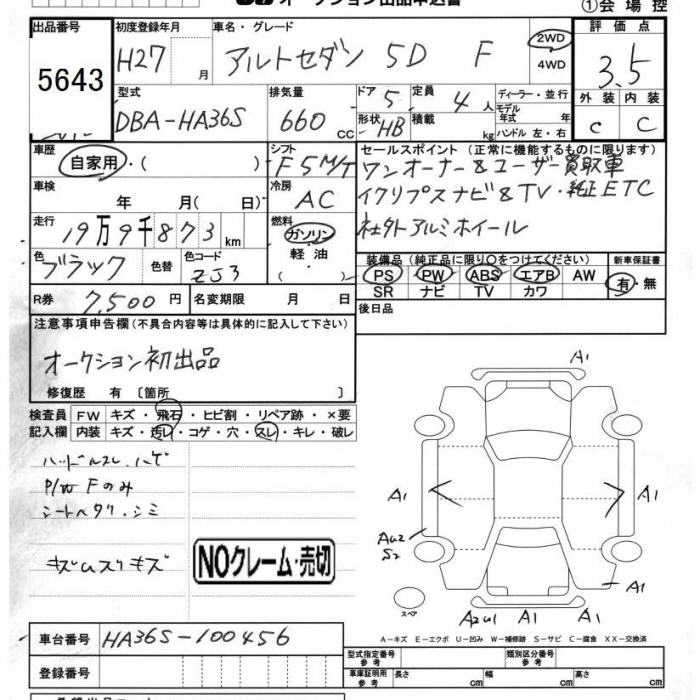 オークション出品申込書
①会場控
出品番号
5643
初度登録年月
H27 月
車名・グレード
アルトセダン 5D F
2WD
4WD
評価点
3.5
型式
DBA-HA36S
排気量
660 CC
ドア 5
形状 HB
定員 4 人
積載 kg
ディーラー・並行
モデル年式 年
ハンドル 左・右
外装 内装
C C
車歴
自家用・( )
シフト
F5M/T
セールスポイント (正常に機能するものに限ります)
ワンオーナー&ユーザー買取車
イクリプスナビ&TV・純正ETC
社外アルミホイール
車検
年 月( 日)
冷房
AC
走行
19万9千873 km
燃料
ガソリン
・軽油・
( )
色
ブラック
色替
色コード
ZJ3
装備品 (純正品に限り○をつけてください)
PS PW ABS エアB AW
SR ナビ TV カワ
新車保証書
有・無
R券 7,500円
名変期限 月 日
後日品
注意事項申告欄(不具合内容等は具体的に記入して下さい)
オークション初出品
修復歴 有 〔箇所 〕
検査員記入欄
FW キズ・飛石・ヒビ割・リペア跡・×要
内装 キズ・汚レ・コゲ・穴・スレ・キレ・破レ
ハンドルスレ、ハゲ
P/W Fのみ
シートヘタリ・シミ
キズムスリキズ
NOクレーム・売切
A1
A1
A1
AU2
S2
A1
スペア
A2U1 A1 A1
A-キズ E-エクボ U-凹み W-補修跡 S-サビ C-腐食 XX-交換済
車台番号 HA36S-100456
登録番号
型式指定番号
参考
類別区分番号
参考
車庫証明用
参考
長さ cm 幅 cm 高さ cm